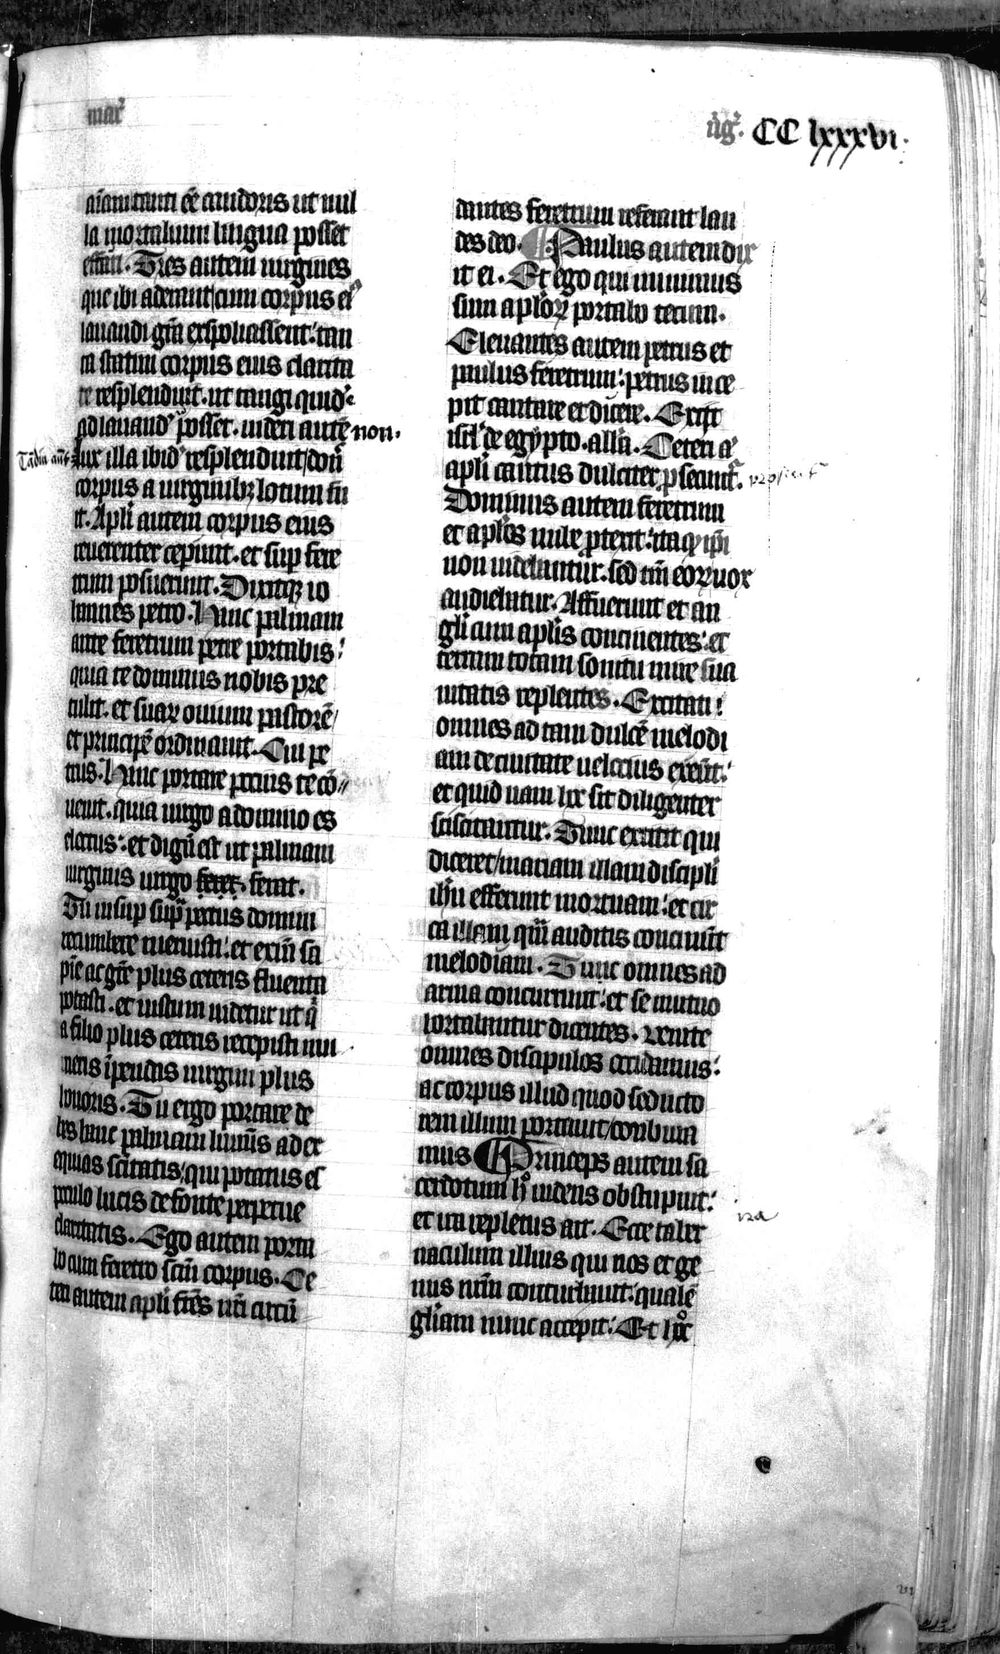 mar̄
v̄g̃. CC lxxxvi.
aīam tanti eē candoris ut nul
la mortalium lingua posset
effari. Tres autem uirgines
que ibi aderant cum corpus eiꝰ
lauandi grā exspoliassent: tan
ta statim corpus eius clarita
te resplenduit. ut tangi quidē
ad lauandū posset. uideri autē non.
Tādiu aūt
lux illa ibidē resplenduit/donec̄
corpus a uirginibꝫ lotum fu
it. Apl̄i autem corpus eius
reuerenter ceperunt. et sup fere
trum posuerunt. Dixitqꝫ io
hannes petro. Hanc palmam
ante feretrum petre portabis:
quia te dominus nobis pre
tulit. et suaꝝ ouium pastorē/
et principē ordinauit. Cui pe
trus. Hanc portare pocius te cō
uenit. quia uirgo a domino es
electus: et dignū est ut palmam
uirginis uirgo ferat.
Tu insup sup̄ pectus domini
recumbere meruisti: et exin̄ sa
pīe ac grē plus ceteris fluenta
potasti. et iustum uidetur ut q̄
a filio plus ceteris recepisti mu
neris īpendas uirgini plus
honoris. Tu ergo portare de
bes hanc palmam luminis ad ex
equias sc̄itatis/qui potatus es
poculo lucis de fonte perpetue
claritatis. Ego autem porta
bo cum feretro scm̄ corpus. Ce
teri autem apl̄i frēs nr̄i circū
dantes feretrum referant lau
des deo. Paulus autem dix
it ei. Et ego qui minimus
sum apl̄oꝝ portabo tecum.
Eleuantes autem petrus et
paulus feretrum: petrus ince
pit cantare et dicere. Exijt
isrl̄ de egypto. all̄a. Ceteri a
apl̄i cantus dulciter p̱secunt̄.
Dominus autem feretrum
et apl̄os nube p̱texit: ita qꝫ ip̄i
non uidebantur. sed tm̄ eoꝝ uox
audiebatur. Affuerunt et an
gl̄i cum apl̄is concinentes: et
terram totam sonitu mire sua
uitatis replentes. Excitati:
omnes ad tam dulcē melodi
am de ciuitate uelocius exeūt:
et quid nam hoc sit diligenter
sciscitantur. Tunc extitit qui
diceret/mariam illam discipli
ih̄u efferunt mortuam: et cir
ca illam quā auditis concinūt
melodiam. Tunc omnes ad
arma concurrunt: et se mutuo
hortabantur dicentes. Venite
omnes discipulos occidamus:
ac corpus illud quod seducto
rem illum portauit/combura
mus Princeps autem sa
cerdotum hͦ uidens obstupuit:
et ira repletus ait. Ecce taber
ira
naculum illius qui nos et ge
nus nr̄m conturbauit: qualē
gl̄iam nunc accepit: Et hͦc